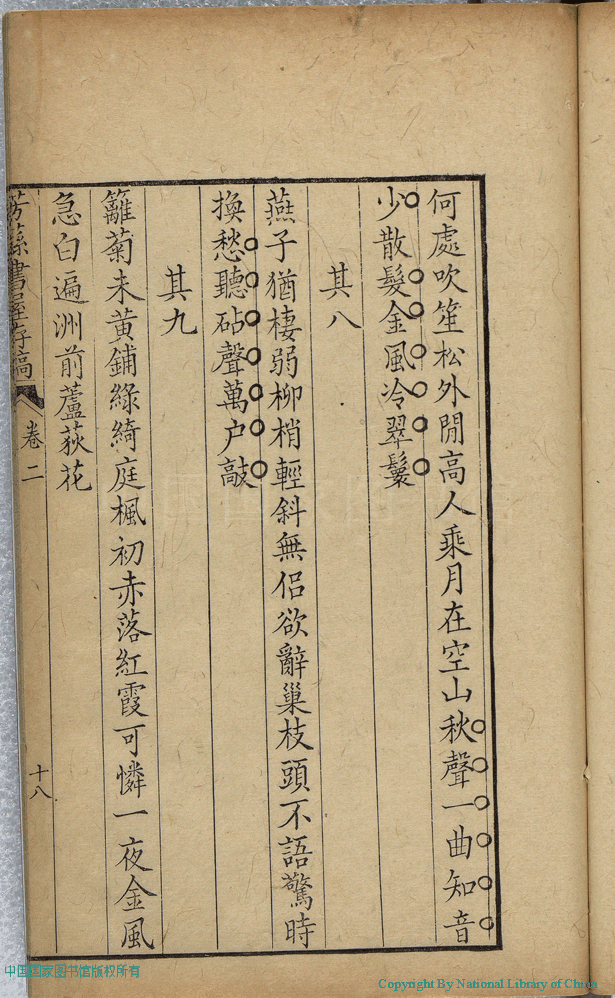 何處吹笙松外閒高人乘月在空山秋聲一曲知音
少散髮金風冷翠鬟
其八
燕子猶棲弱柳梢輕斜無侶欲辭巢枝頭不語驚時
換愁聽砧聲萬户敲
其九
籬菊未黃鋪綠綺庭楓初赤落紅霞可憐一夜金風
急白遍洲前蘆荻花
書屋存稿 卷二 十八
中国国家图书馆版权所有
Copyright By National Library of China